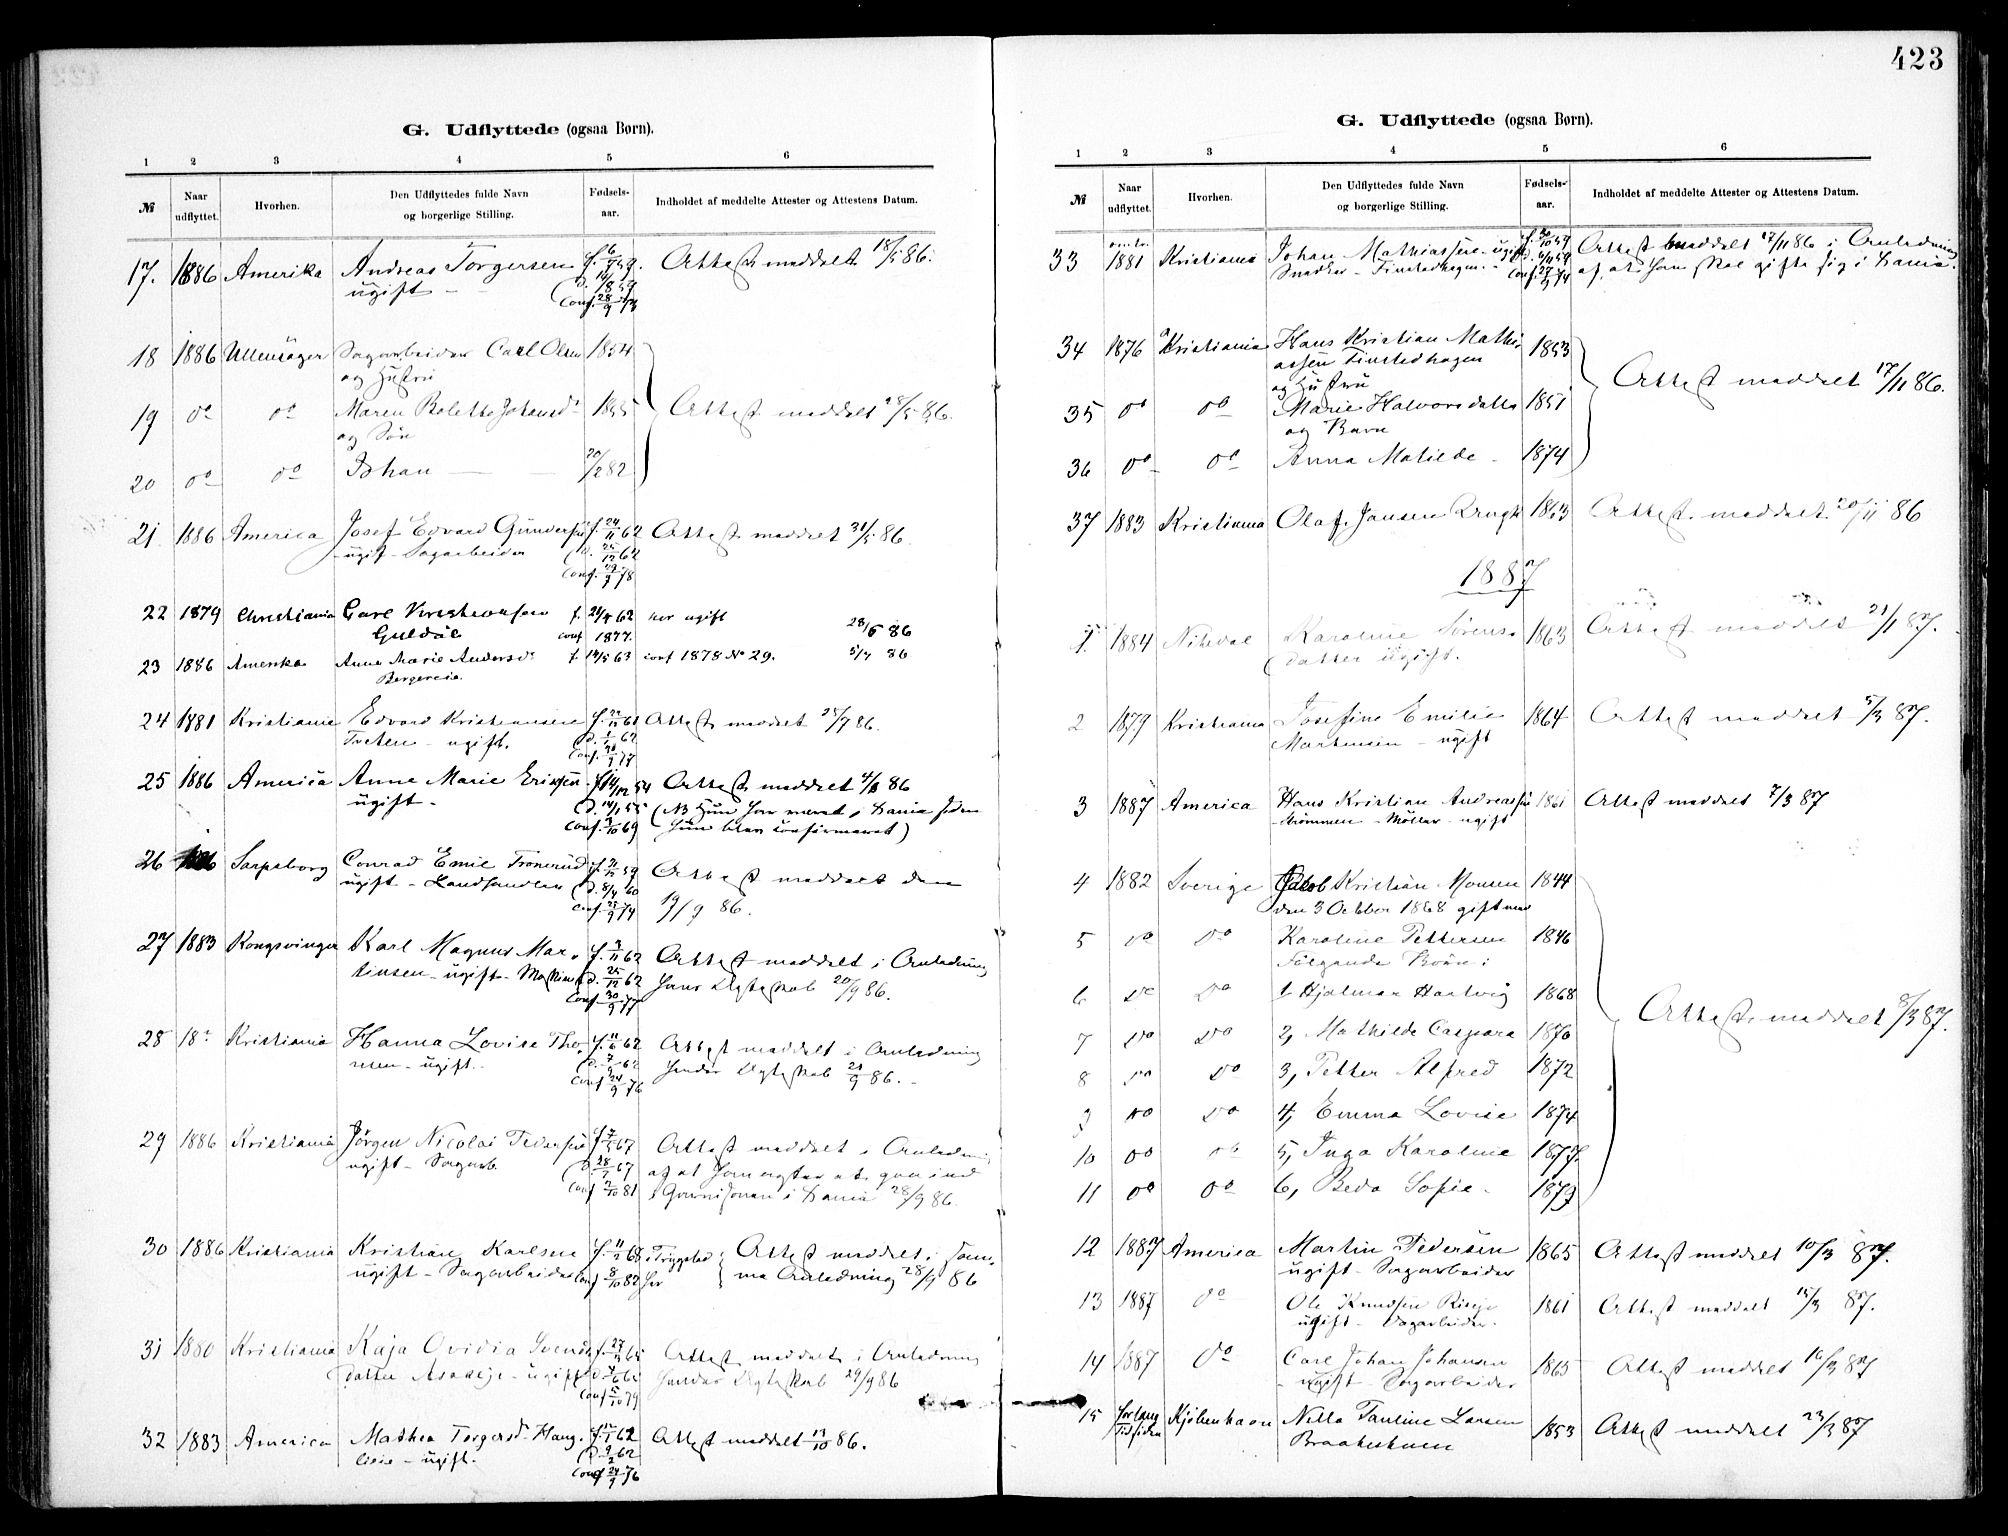 423
G. Udflyttede (ogsaa Børn).
1 2 3 4 5 6
№ Naar udflyttet. Hvorhen. Den Udflyttedes fulde Navn og borgerlige Stilling. Fødsels-aar. Indholdet af meddelte Attester og Attestens Datum.
17. 1886 Amerika Andreas Torgersen Attest meddelt 18/5 86.
ugift
18 1886 Ullensager Sagarbeider Carl Olsen 1854
og Hustru
19 do do Maren Bolette Johansd. 1855 Attest meddelt 28/5 86.
og Søn
20 do do Johan 20/2 82
21 1886 America Josef Edvard Gundersen f. 24/11 62 Attest meddelt 31/5 86.
ugift - Sagarbeider
conf. 29/9 78
22 1879 Christiania Carl Kristiansen f. 24/4 62 her ugift 28/6 86
Guldal conf 1877.
23 1886 Amerika Anne Marie Andersd. f. 14/5 63 conf 1878 No 29. 5/7 86
24 1881 Kristiania Edvard Kristiansen Attest meddelt 25/7 86.
Tveten - ugift.
25 1886 America Anne Marie Eriksen f. 14/12 54 Attest meddelt 4/8 86
ugift - d. 14/1 55 (NB Hun har været i Xania siden
Conf. 3/10 69 hun blev confirmeret)
26 Sarpsborg Conrad Emil Tronerud Attest meddelt den
ugift - Landhandler d. 8/4 60 19/9 86.
27 1883 Kongsvinger Karl Magnus Mar- f. 3/11 62 Attest meddelt i Anledning
tinsen - ugift - d. 25/12 62 hans Ægteskab 20/9 86.
Conf. 30/9 77
28 Kristiania Hanna Lovise Tho- f. 11/6 62 Attest meddelt i Anledning
ugift. hendes Ægteskab 21/9 86.
Conf 24/9 76
29 1886 Kristiania Jørgen Nicolai Pedersen Attest meddelt i Anledning
ugift - Sagarb. af at han agter at gaa ind
Conf 2/10 81 i Garnisonen i Xania 28/9 86.
30 1886 Kristiania Kristian Karlsen f. 11/2 68 i Trygstad Attest meddelt i sam-
ugift - Sagarbeider Conf 8/10 82 her me Anledning 28/9 86
31 1880 Kristiania Kaja Ovidia Svends Attest meddelt i Anledning
datter - ugift hendes Ægteskab 29/9 86
Conf 5/10 79
32 1883 America Mathea Torgersd. Haug- f. 12/1 62 Attest meddelt 17/10 86.
ugift. d. 9/2 62
Conf 24/9 76
G. Udflyttede (ogsaa Børn).
1 2 3 4 5 6
№ Naar udflyttet. Hvorhen. Den Udflyttedes fulde Navn og borgerlige Stilling. Fødsels-aar. Indholdet af meddelte Attester og Attestens Datum.
33 omtr. 1881 Kristiania Johan Mathiassen - ugift Attest meddelt 17/11 86 i Anledning
Snedker - Finstadhagen - af at han skal gifte sig i Xania.
34 1876 Kristiania Hans Kristian Mathi- 1853
assen Finstadhagen
og Hustru Attest meddelt 17/11 86.
35 do do Marie Halvorsdatter 1851
og Barn
36 do do Anna Matilde - 1874
37 1883 Kristiania Olaf Jansen 1863 Attest meddelt 20/11 86
1887
1 1884 Nitedal Karoline Sørens- 1863 Attest meddelt 21/1 87.
datter ugift.
2 1879 Kristiania Josefine Emilie 1864 Attest meddelt 5/3 87.
Martensen - ugift
3 1887 America Hans Kristian Andreassen 1861 Attest meddelt 7/3 87
Strømmen - Møller - ugift
4 1882 Sverige Jakob Kristian Monsen 1844
den 3 Octbber 1868 gift med
5 do do Karoline Pettersen 1846
Følgende Børn:
6 do do 1 Hjalmar Hartvig 1868 Attest meddelt 8/3 87.
7 do do 2, Mathilde Caspara 1870
8 do do 3, Petter Alfred 1872
9 do do 4, Emma Lovise 1874
10 do do 5, Inga Karoline 1877.
11 do do 6, Beda Sofie. 1879
12 1887 America Martin Pedersen 1865 Attest meddelt 10/3 87.
ugift - Sagarbeider
13 1887 do Ole Knudsen 1861 Attest meddelt 15/3 87.
ugift - Sagarbeider.
14 1887 do Carl Johan Johansen 1865 Attest meddelt 16/3 87
ugift - Sagarbeider
15 for lang Tid siden Kjøbenhavn Nella Pauline Larsen 1853 Attest meddelt 23/3 87